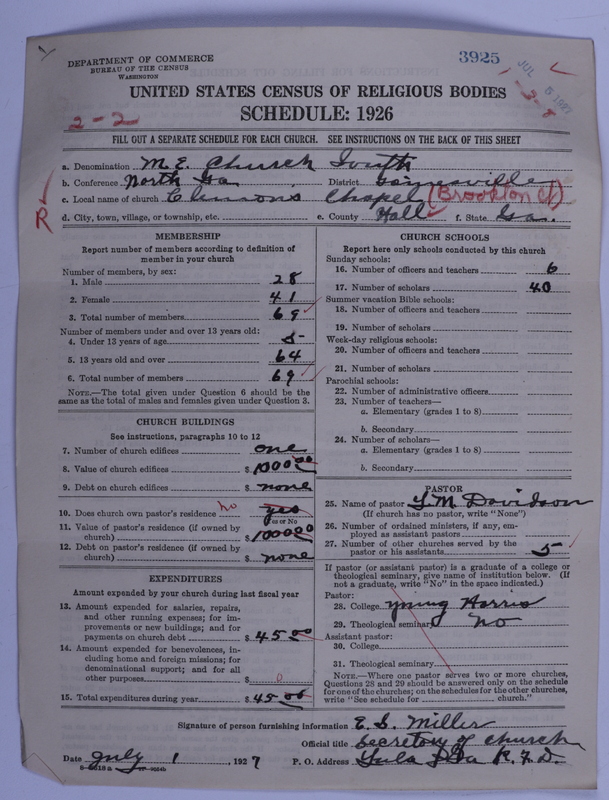 DEPARTMENT OF COMMERCE
BUREAU OF THE CENSUS
WASHINGTON
3925
JUL 5 1927
2-8
UNITED STATES CENSUS OF RELIGIOUS BODIES
SCHEDULE: 1926
2-2
FILL OUT A SEPARATE SCHEDULE FOR EACH CHURCH. SEE INSTRUCTIONS ON THE BACK OF THIS SHEET
a. Denomination M.E. Church South
b. Conference North Ga District Gainesville
c. Local name of church Chapel (Brookton Ct)
R
d. City, town, village, or township, etc. e. County Hall f. State Ga.
MEMBERSHIP
Report number of members according to definition of
member in your church
Number of members, by sex:
1. Male 28
2. Female 41
3. Total number of members 69
Number of members under and over 13 years old:
4. Under 13 years of age 5
5. 13 years old and over 64
6. Total number of members 69
NOTE.—The total given under Question 6 should be the
same as the total of males and females given under Question 3.
CHURCH BUILDINGS
See instructions, paragraphs 10 to 12
7. Number of church edifices one
8. Value of church edifices $ 1000 00
9. Debt on church edifices $ none
10. Does church own pastor's residence no yes
(Yes or No)
11. Value of pastor's residence (if owned by
church) $ 1000 00
12. Debt on pastor's residence (if owned by
church) $ none
EXPENDITURES
Amount expended by your church during last fiscal year
13. Amount expended for salaries, repairs,
and other running expenses; for im-
provements or new buildings; and for
payments on church debt $ 45 00
14. Amount expended for benevolences, in-
cluding home and foreign missions; for
denominational support; and for all
other purposes $ 0
15. Total expenditures during year $ 45 00
CHURCH SCHOOLS
Report here only schools conducted by this church
Sunday schools:
16. Number of officers and teachers 6
17. Number of scholars 40
Summer vacation Bible schools:
18. Number of officers and teachers
19. Number of scholars
Week-day religious schools:
20. Number of officers and teachers
21. Number of scholars
Parochial schools:
22. Number of administrative officers
23. Number of teachers—
a. Elementary (grades 1 to 8)
b. Secondary
24. Number of scholars—
a. Elementary (grades 1 to 8)
b. Secondary
PASTOR
25. Name of pastor L.M. Davidson
(If church has no pastor, write "None")
26. Number of ordained ministers, if any, em-
ployed as assistant pastors
27. Number of other churches served by the
pastor or his assistants 5
If pastor (or assistant pastor) is a graduate of a college or
theological seminary, give name of institution below. (If
not a graduate, write "No" in the space indicated.)
Pastor:
28. College Young Harris
29. Theological seminary No
Assistant pastor:
30. College
31. Theological seminary
NOTE.—Where one pastor serves two or more churches,
Questions 28 and 29 should be answered only on the schedule
for one of the churches; on the schedules for the other churches,
write "See schedule for church."
Signature of person furnishing information E. S. Miller
Official title Secretory of church
Date July 1, 1927 P. O. Address Lula Ga R.F.D.